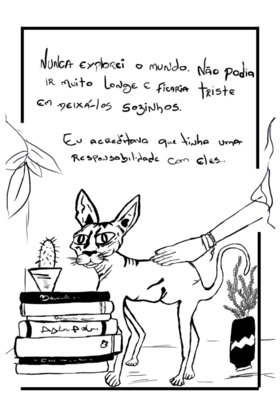 Nunca explorei o mundo. Não podia
ir muito longe e ficaria triste
em deixá-los sozinhos.
Eu acreditava que tinha uma
responsabilidade com eles...